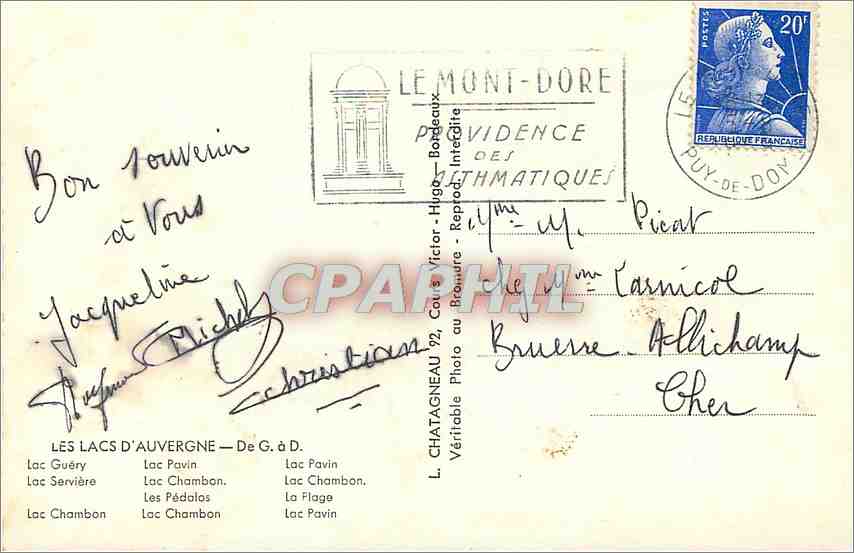 POSTES
20F
REPUBLIQUE FRANÇAISE
LE MONT-DORE
PROVIDENCE
DES
ASTHMATIQUES
PUY-DE-DOME
Bon souvenir
à Vous
Jacqueline
Michel
Christian
CPAPHIL
L. CHATAGNEAU 92, Cours Victor-Hugo — Bordeaux
Véritable Photo au Bromure - Reprod. Interdite
Mme M. Picat
chez Mme Tarnicol
Bruerre-Allichamp
Cher
LES LACS D'AUVERGNE — De G. à D.
Lac Guéry Lac Pavin Lac Pavin
Lac Servière Lac Chambon. Lac Chambon.
Les Pédalos La Plage
Lac Chambon Lac Chambon Lac Pavin